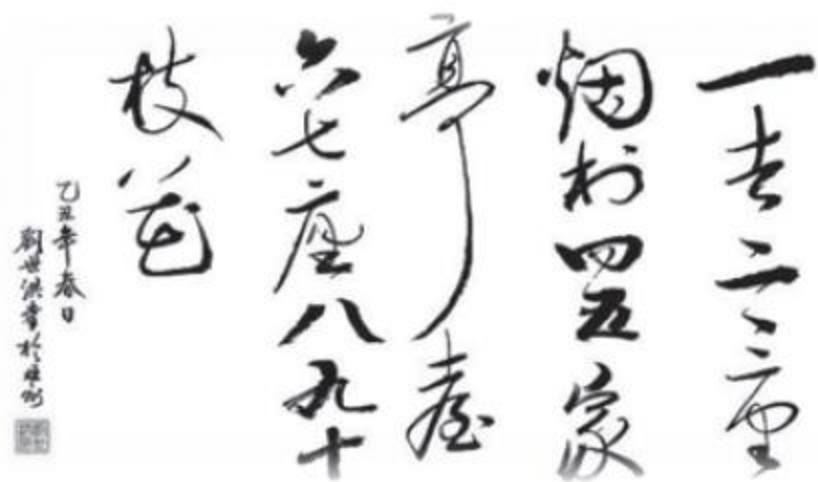 一去二三里
烟村四五家
亭臺
六七座八九十
枝花
乙丑年春日
劉世洪書於州